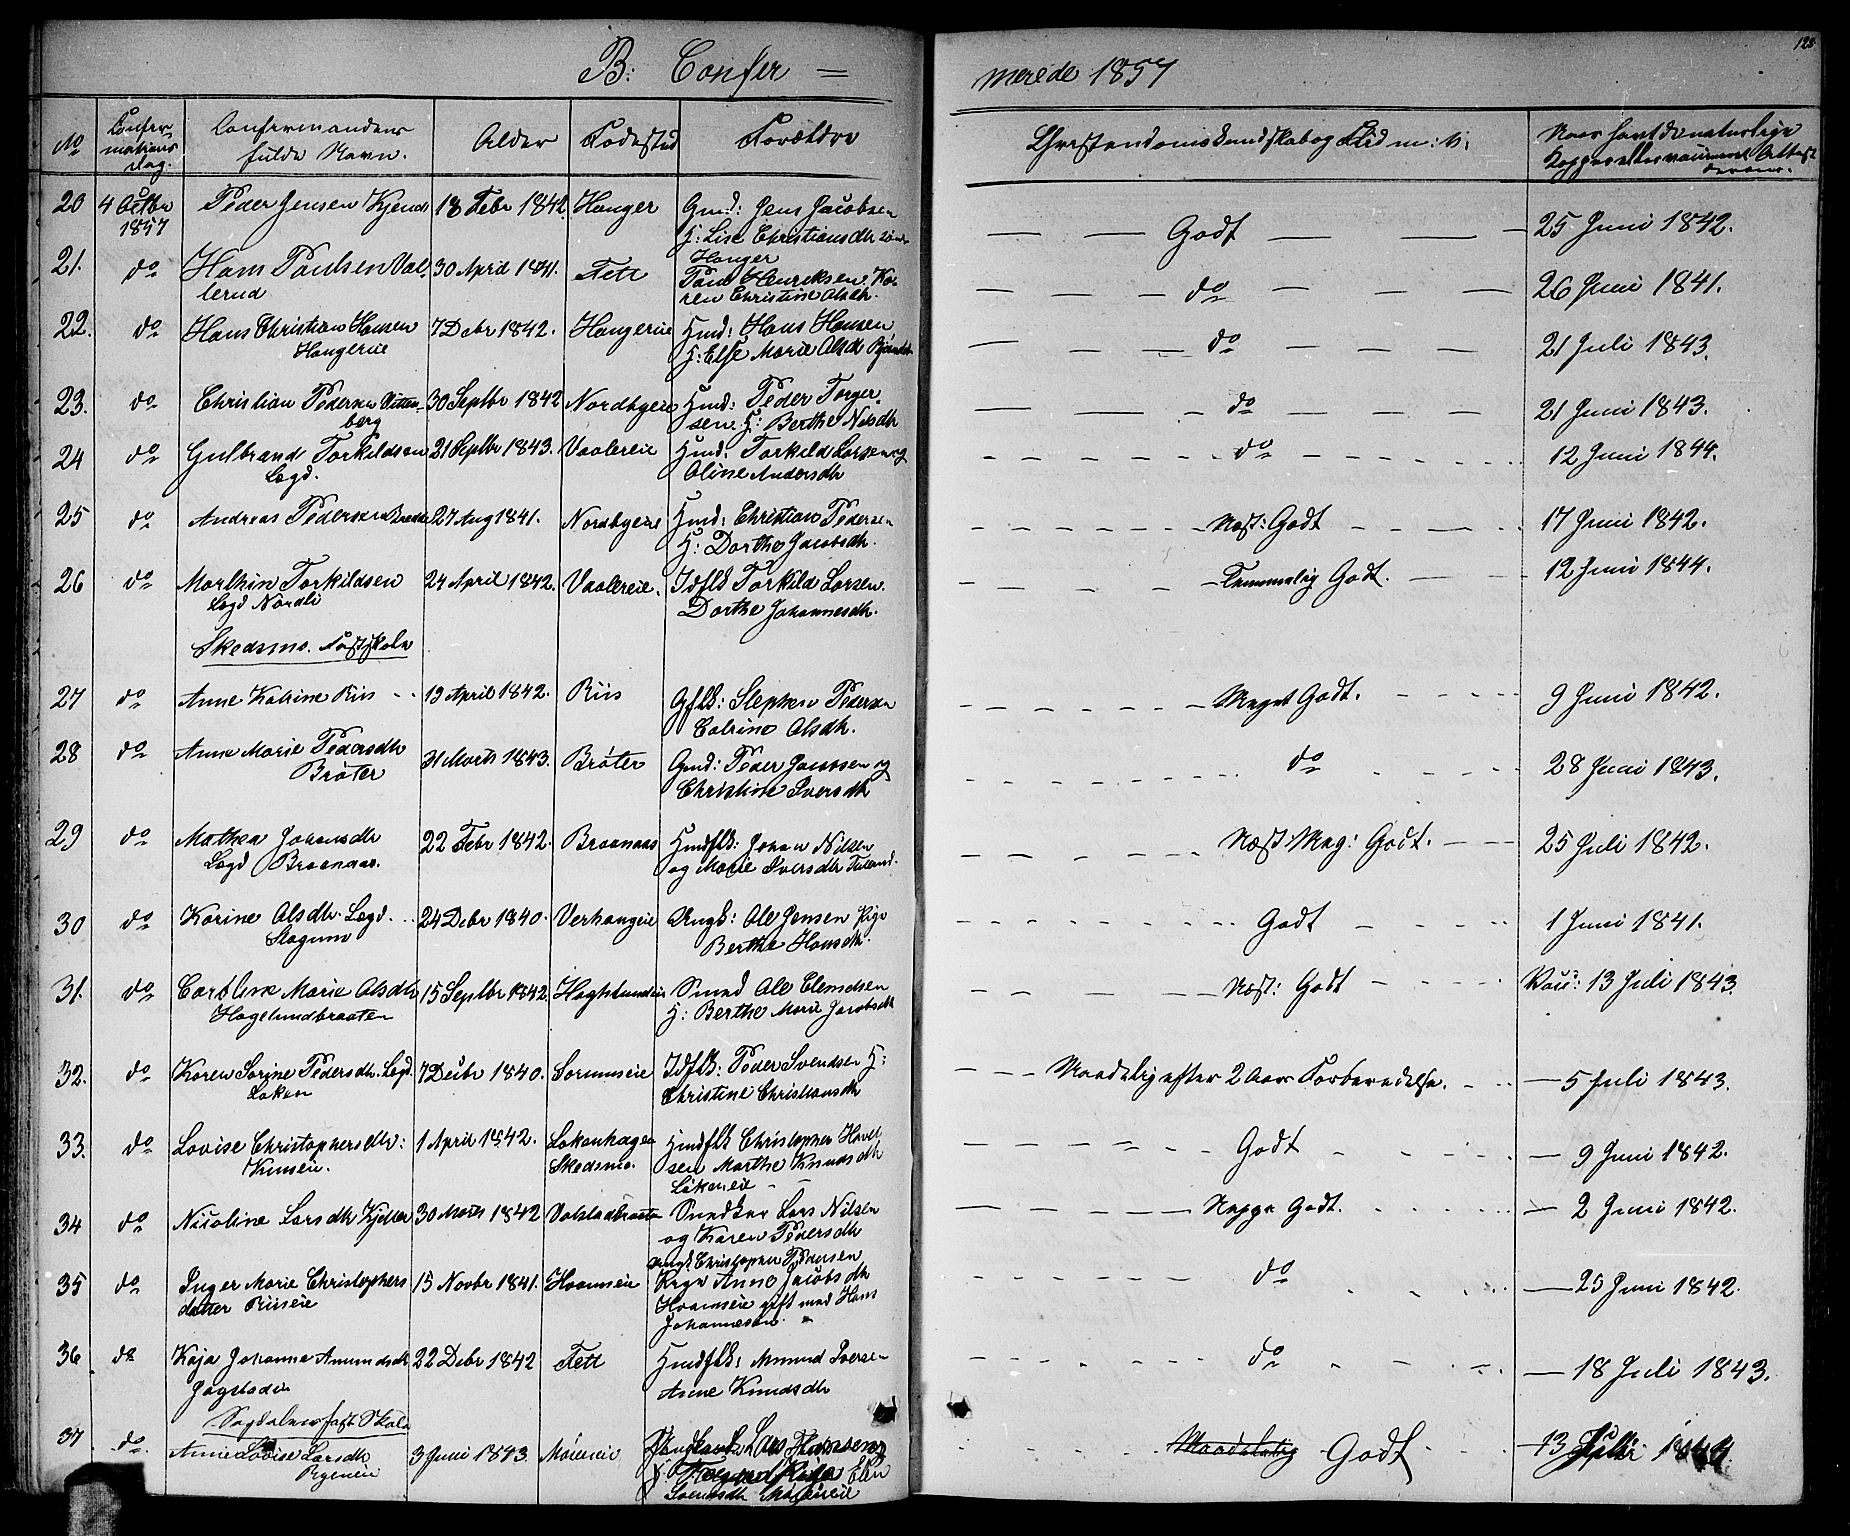 B: Confir =
merede 1857
128
No
Confir-
mations
dag.
Confirmandens
fulde Navn.
Alder
Fødested
Forældre
Christendomskundskab og Flid m: v:
Naar havt de naturlige
Kopper eller vaccineret Attest
derom.
20 4 Octbr 1857 Peder Jensen Kjend 18 Febr 1842. Hanger Gmd: Jens Jacobsen
H: Lise Christiansdtr
Hanger
Godt 25 Juni 1842.
21. do Hans Paulsen Val-
lerud 30 April 1841. Fett Paul Henriksen. Ka-
ren Christine Olsdtr.
do 26 Juni 1841.
22. do Hans Christian Hansen
Hangereie 7 Decbr 1842. Hangereie Hmd: Hans Hansen
H: Else Marie Olsdtr
do 21 Juli 1843.
23. do Christian Pedersen Vitten-
berg 30 Septbr 1842 Nordbyeie Hmd: Peder Torger-
sen. H: Berthe Nilsdtr
do 21 Juni 1843.
24 do Gulbrand Torkildsen
Lægd. 21 Septbr 1843. Vaalereie Hmd: Torkild Larsen og
Oline Andersdtr
do 12 Juni 1844.
25 do Andreas Pedersen 27 Aug 1841. Nordbyeie Hmd: Christian Peder-
sen
H: Dorthe Jacobsdtr.
Næst: Godt 17 Juni 1842.
26 do Marthin Torkildsen
Lægd Nordli 24 April 1842. Vaalereie. Idflk Torkild Larsen.
Dorthe Johannesdtr.
Temmelig Godt. 12 Juni 1844.
Skedsmo. Fastskole
27 do Anne Katrine Riis 13 April 1842. Riis Gflk: Stephen Pedersen
Catrine Olsdtr.
Meget Godt. 9 Juni 1842.
28 do Anne Marie Pedersdtr
Brøter 31 Marts 1843. Brøter Gmd: Peder Jacobsen og
Christine Iversdtr
do 28 Juni 1843.
29 do Mathea Johansdtr
Lægd Braanaas. 22 Febr 1842. Braanaas Hmdflk: Johan Nilsen
og Marie Iversdtr
Næst Meg: Godt. 25 Juli 1842.
30 do Karine Olsdtr. Lægd.
Slagum 24 Debr 1840. Verhaugeie Ungk: Ole Jensen Pige
Berthe Hansdtr.
Godt 1 Juni 1841.
31. do Caroline Marie Olsdtr
Hagelundbraaten 15 Septbr 1842. Haglundeie Smed Ole Clemetsen
H: Berthe Marie Jacobsdtr
Næst: Godt Vac: 13 Juli 1843.
32. do Karen Sorine Pedersdtr. Lægd.
Løken 7 Decbr 1840. Sørumseie Idflk: Peder Svendsen H:
Christine Christiansdtr
Maadelig efter 2 Aars Forberedelse. 5 Juli 1843.
33. do Lovise Christophersdtr:
1 April 1842. Løkenhagen
Skedsmo. Hmdflk Christopher Havel-
sen Marthe Knudsdtr
Løkeneie
Godt 9 Juni 1842.
34 do Nicoline Larsdtr Kjeller 30 Marts 1842 Valstadbraaten Snedker Lars Nilsen
og Karen Pedersdtr
Neppe Godt. 2 Juni 1842.
35 do Inger Marie Christophers
datter Riiseie 15 Novbr 1841. Hvamseie Ungk. Christopher Pedersen
Anne Jacobsdtr
Hvamseie gift med Hans
Johannesen
do 25 Juni 1842.
36 do Kaja Johanne Amundsdtr
22 Debr 1842 Fett Hmdflk: Amund Iversen
Anne Knudsdtr
do 18 Juli 1843.
Sagdalens fast Skole
37 do. Anne Lovise Larsdtr
Ryeneie 3 Juni 1843. Møneneie Ungkarl Lars Hansen og
Elen
Svendsdtr
Maadelig Godt 13